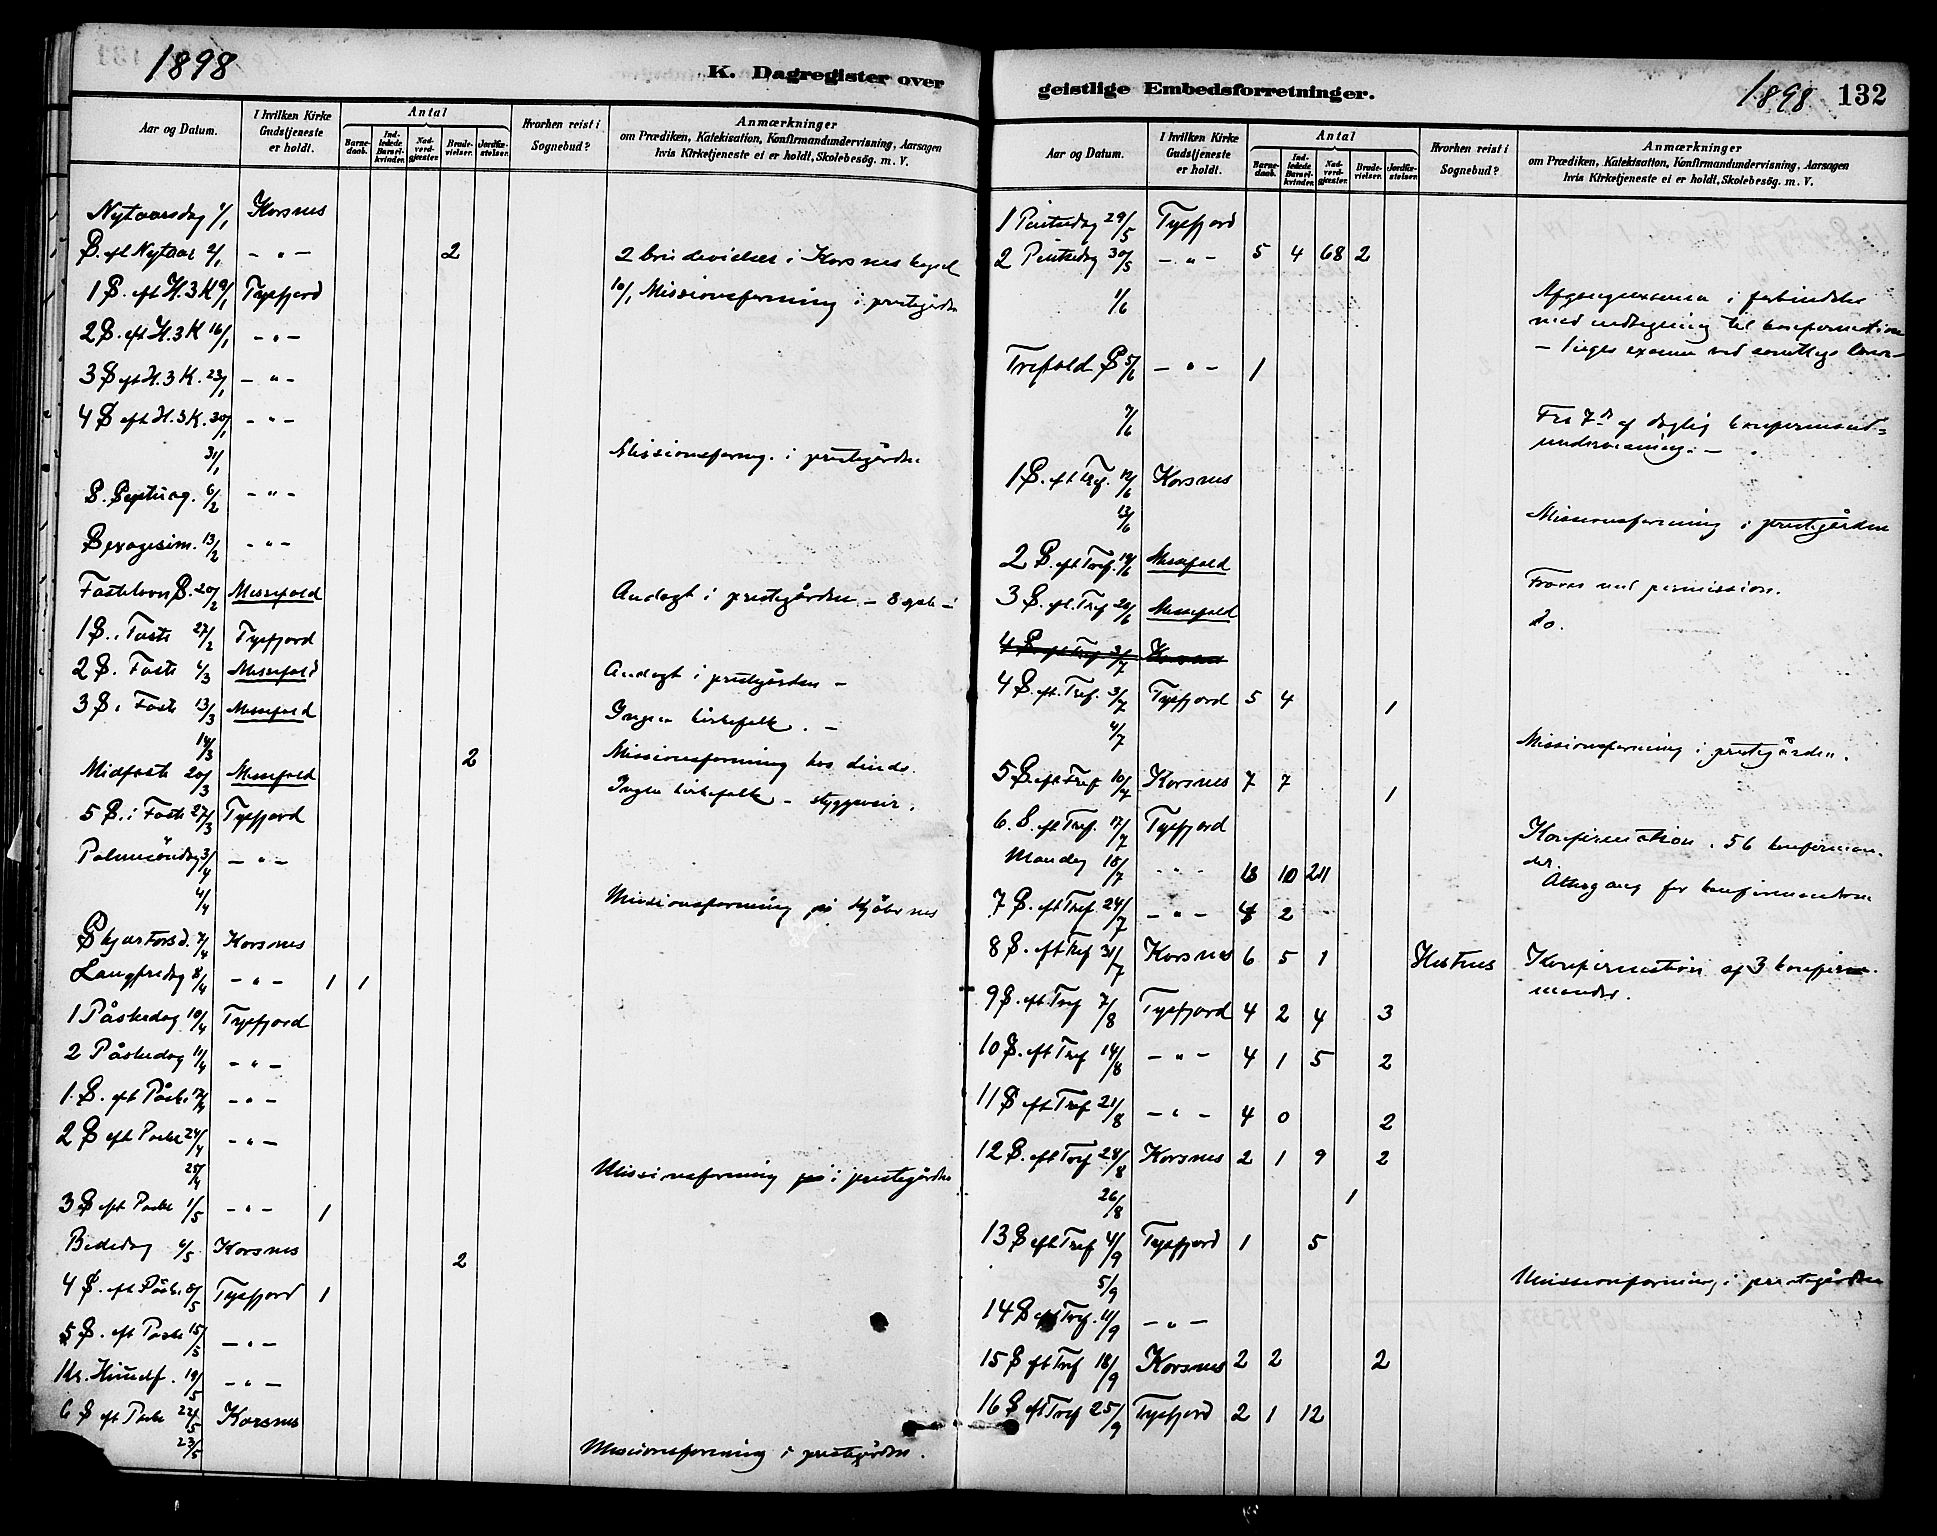 1898
K. Dagregister over
Aar og Datum.
I hvilken Kirke Gudstjeneste er holdt.
Antal
Barnedaab.
Indledede Barselkvinder.
Nadverdgjester.
Brudevielser.
Jordfæstelser.
Hvorhen reist i Sognebud?
Anmærkninger
om Prædiken, Katekisation, Konfirmandundervisning, Aarsagen
hvis Kirketjeneste ei er holdt, Skolebesøg. m. V.
Nytaarsdag 1/1 Korsnes
S. ef Nytaar 2/1 — " — 2 2 brudevielser i Korsnes
1 S. eft H. 3 K 9/1 Tysfjord 10/1 Missionsforening i prestegården
2 S. eft H. 3 K 16/1 — " —
3 S eft H. 3 K. 23/1 — " —
4 S eft H. 3 K. 30/1 — " —
31/1 Missionsforng. i prestegården
S. Septuag. 6/2 — " —
Sexagesim. 13/2 — " —
Fastelavn S. 20/2 Messefald Andagt i prestegården —
1 S. i Faste 27/2 Tysfjord
2 S. Faste 6/3 Messefald Andagt i prestegården —
3 S. i Faste 13/3 Messefald Ingen kirkefolk. —
14/3 2 Missionsforening hos
Midfaste 20/3 Messefald Ingen kirkefolk — styggveir.
5 S. i Faste 27/3 Tysfjord
Palmesöndag 3/4 — " —
4/4 Missionsforening på Kjöbsnes
Skjærtorsd. 7/4 Korsnes
Langfredag 8/4 — " — 1 1
1 Påskedag 10/4 Tysfjord
2 Påskedag 11/4 — " —
1. S. eft Påske 17/4 — " —
2 S eft Paske 24/4 — " —
25/4 Missionsforening på i prestegården
3 S eft Paske 1/5 — " — 1
Bededag 6/5 Korsnes 2
4 S. eft Påske 8/5 Tysfjord 1
5 S. eft Paske 15/5 — " —
Kr. Himmelf. 19/5 — " —
6 S eft Paske 22/5 Korsnes
23/5 Missionsforening i prestegården.
geistlige Embedsforretninger.
1898 132
Aar og Datum.
I hvilken Kirke Gudstjeneste er holdt.
Antal
Barnedaab.
Indledede Barselkvinder.
Nadverdgjester.
Brudevielser.
Jordfæstelser.
Hvorhen reist i Sognebud?
Anmærkninger
om Prædiken, Katekisation, Konfirmandundervisning, Aarsagen
hvis Kirketjeneste ei er holdt, Skolebesøg. m. V.
1 Pintsedag 29/5 Tysfjord
2 Pintsedag 30/5 — " — 5 4 68 2
1/6 Afgangsexamen i forbindelse
med indtegning til konfirmation
— examen ved
Trefold. S 5/6 — " — 1
7/6 Fra 7de af daglig konfirmand-
undervisning. —
1 S. eft Tref. 12/6 Korsnes
13/6 Missionsforening i prestegården
2 S. eft Tref. 19/6 Messefald Fravær med permission.
3 S. ef. Tref 26/6 Messefald do.
4 S. eft Tref 3/7 Korsnes
4 S. eft. Tref. 3/7 Tysfjord 5 4 1
4/7 Missionsforening i prestegården.
5 S. eft Tref 10/7 Korsnes 7 7 1
6. S. eft Tref. 17/7 Tysfjord Konfirmation. 56 konfirman-
der.
Mandag 18/7 " 13 10 211 Altergang for konfirmanterne
7 S. eft Tref 24/7 — " — 4 2
8 S. eft Tref 31/7 Korsnes 6 5 1 Hestnes Konfirmation af 3 konfir-
mander.
9 S. eft Tref 7/8 Tysfjord 4 2 4 3
10 S. eft Tref 14/8 — " — 4 1 5 2
11 S eft Tref 21/8 — " — 4 0 2
12 S. eft Tref 28/8 Korsnes 2 1 9 2
26/8 1
13 S eft Tref 4/9 Tysfjord 1 5
5/9 Missionsforening i prestegården
14 S eft Tref. 11/9 — " —
15 S eft Tref 18/9 Korsnes 2 2 2
16 S eft Tref 25/9 Tysfjord 2 1 12